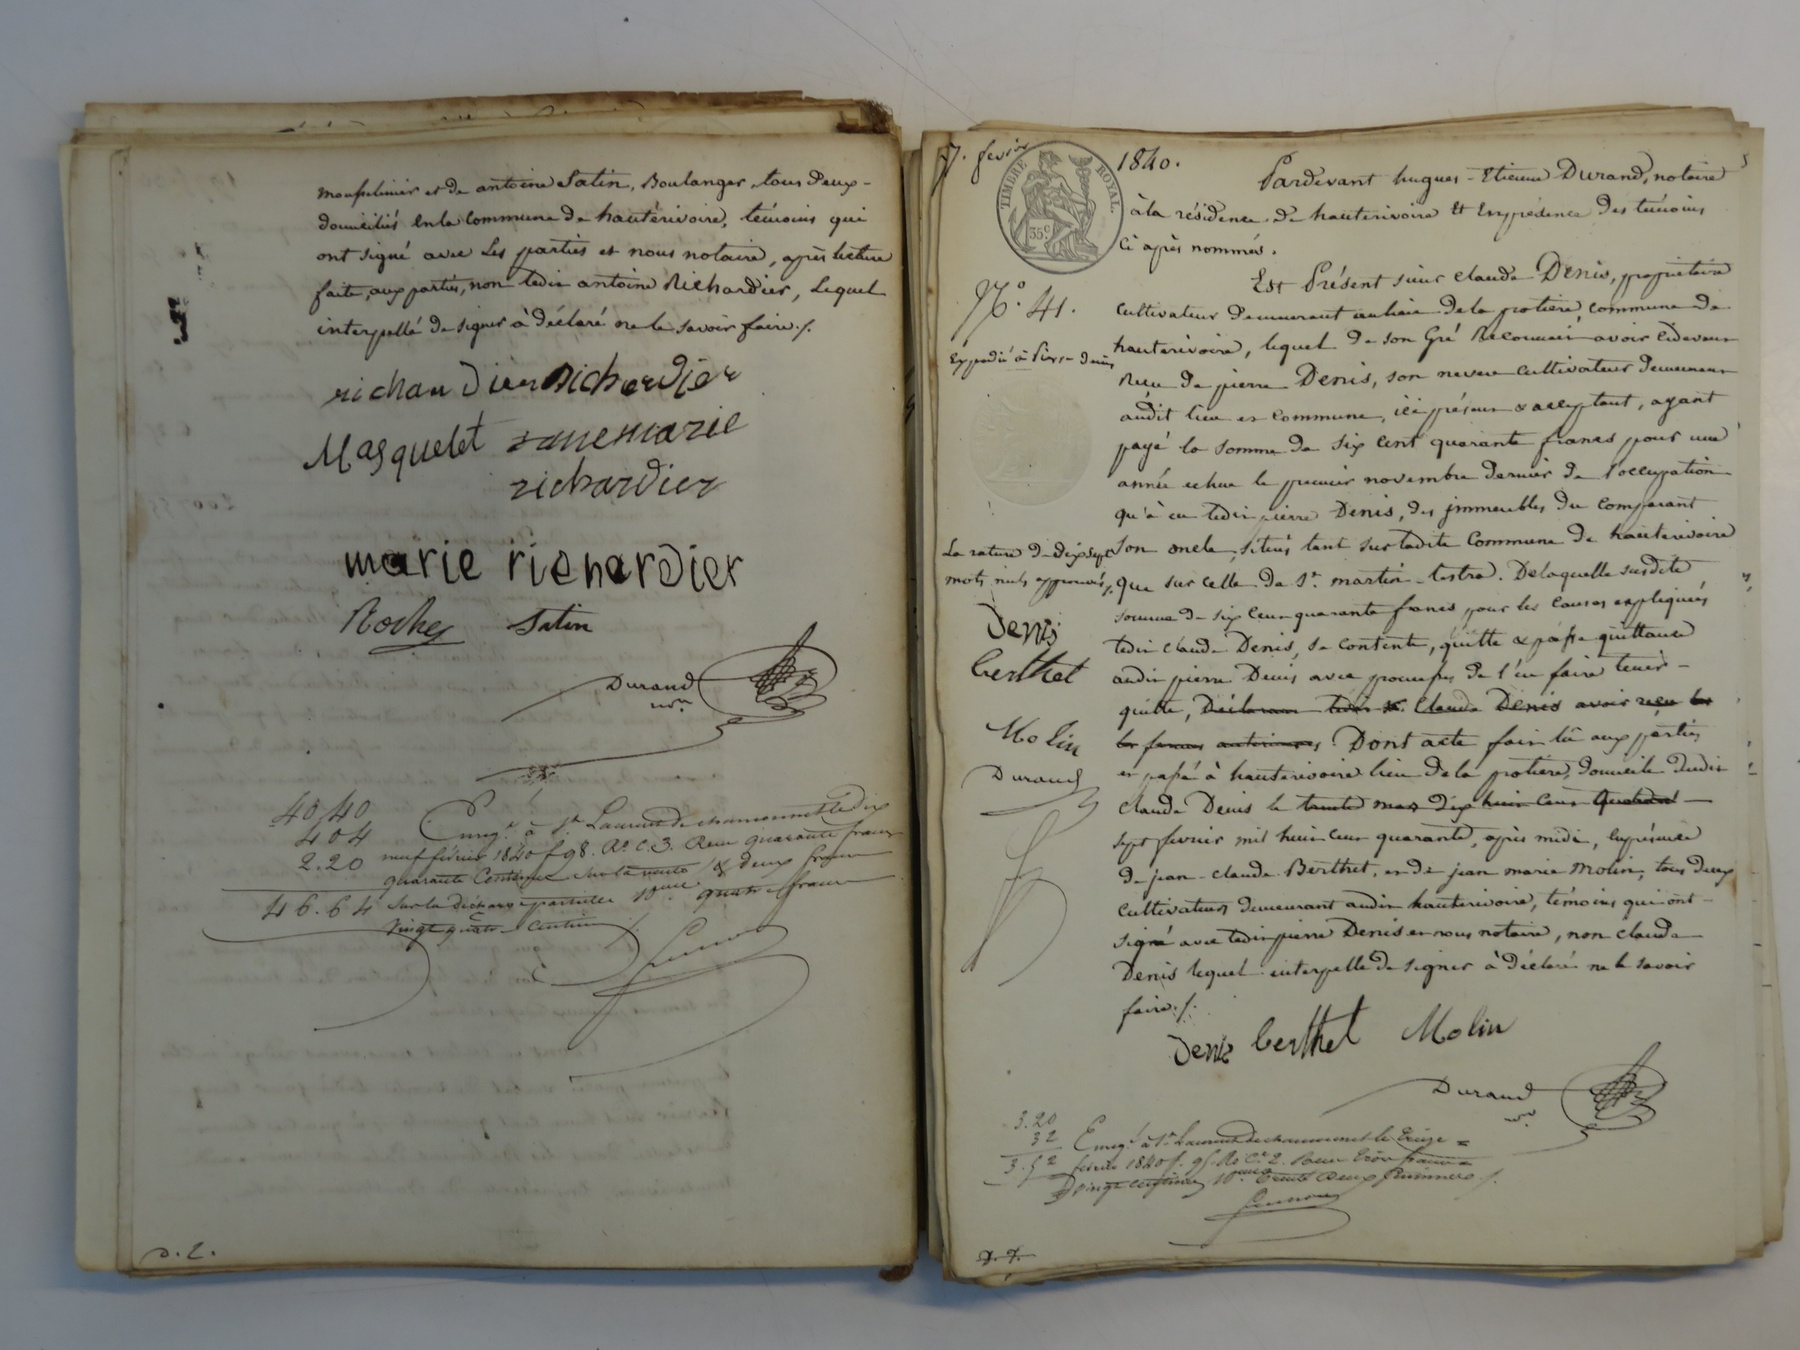 moufelinier et de antoine Satin, Boulanger, tous deux-
domiciliés en la Commune de hauterivoire, témoins qui
ont signé avec Les parties et nous notaire, après lecture
faite, aux parties, non ledit antoine Richardier, Lequel
interpellé de signer à déclaré ne le savoir faire ./.
richardier Richardier
Masquelet annemarie
richardier
marie richardier
Roche Satin
Durand
nre
40.40
4 04
2.20
46.64
Enreg.é à St. Laurent de chamousset le dix
neuf février 1840 f. 98. Ro. C. 3. Reçu quarante francs
quarante Centimes sur la vente & deux francs
sur la décharge partielle 10me quatre francs
vingt quatre centimes
D. 2.
7. février 1840.
TIMBRE ROYAL.
35 C.
Pardevant hugues-Etienne Durand, notaire
à la résidence de hauterivoire Et En présence des témoins
Ci après nommés.
N.o 41.
Expédié à Pierre denis
Est Présent sieur claude Denis, propriétaire
Cultivateur demeurant au lieu de la potière, commune de
hauterivoire, lequel de son Gré Reconnait avoir cidevant
Reçu de pierre Denis, son neveu cultivateur demeurant
audit lieu et Commune, ici présent & acceptant, ayant
payé la somme de six cent quarante francs pour une
année echue le premier novembre dernier de l'occupation
qu'à eu ledit pierre Denis, des jmmeubles du comparant
son oncle, situés tant sur ladite Commune de hauterivoire
que sur celle de St. martin-lestra. De laquelle susdite
somme de six cent quarante francs pour les causes expliquées
ledit claude Denis, se contente, quitte & passe quittance
audit pierre Denis avec promesse de l'en faire tenir-
quitte, Déclarant ledit Sr. Claude Denis avoir reçu les
les fermes antérieures Dont acte fait lû aux parties
et passé à hauterivoire lieu de la potière, domicile dudit
Claude Denis le trente mars dix huit cent Quarante
sept février mil huit cent quarante, après midi, En présence
de jean-claude Berthet, et de jean marie Molin, tous deux
Cultivateurs demeurant audit hauterivoire, témoins qui ont-
signé avec ledit pierre Denis et nous notaire, non claude
Denis lequel interpellé de signer à déclaré ne le savoir
faire ./.
La rature de dix sept
mots nuls approuvés
Denis
berthet
Molin
Durand
Denis berthet Molin
Durand
nre
3.20
32
3.52
Enreg.é à St. Laurent de chamousset le treize
février 1840 f. 95. Ro. C.e 2. Reçu trois francs
vingt centimes 10me trente deux centimes ./.
D. 7.